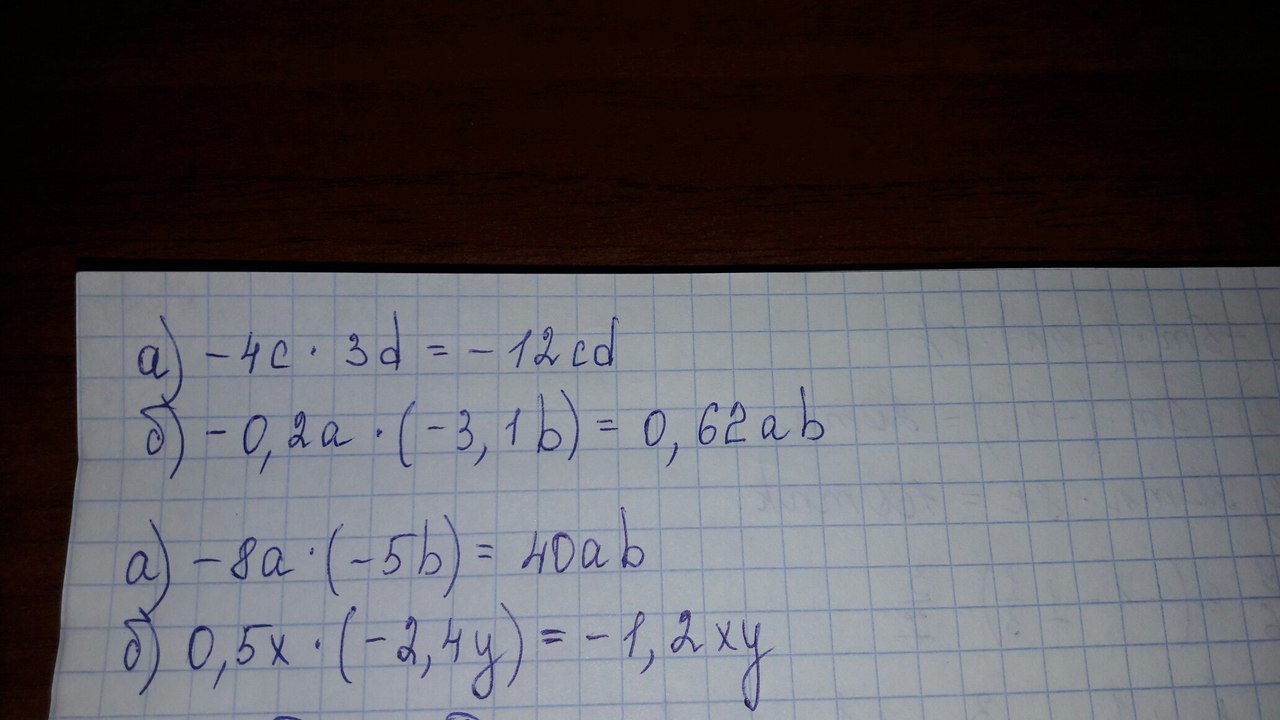 а) -4c · 3d = -12cd
б) -0,2a · (-3,1b) = 0,62ab
а) -8a · (-5b) = 40ab
б) 0,5x · (-2,4y) = -1,2xy